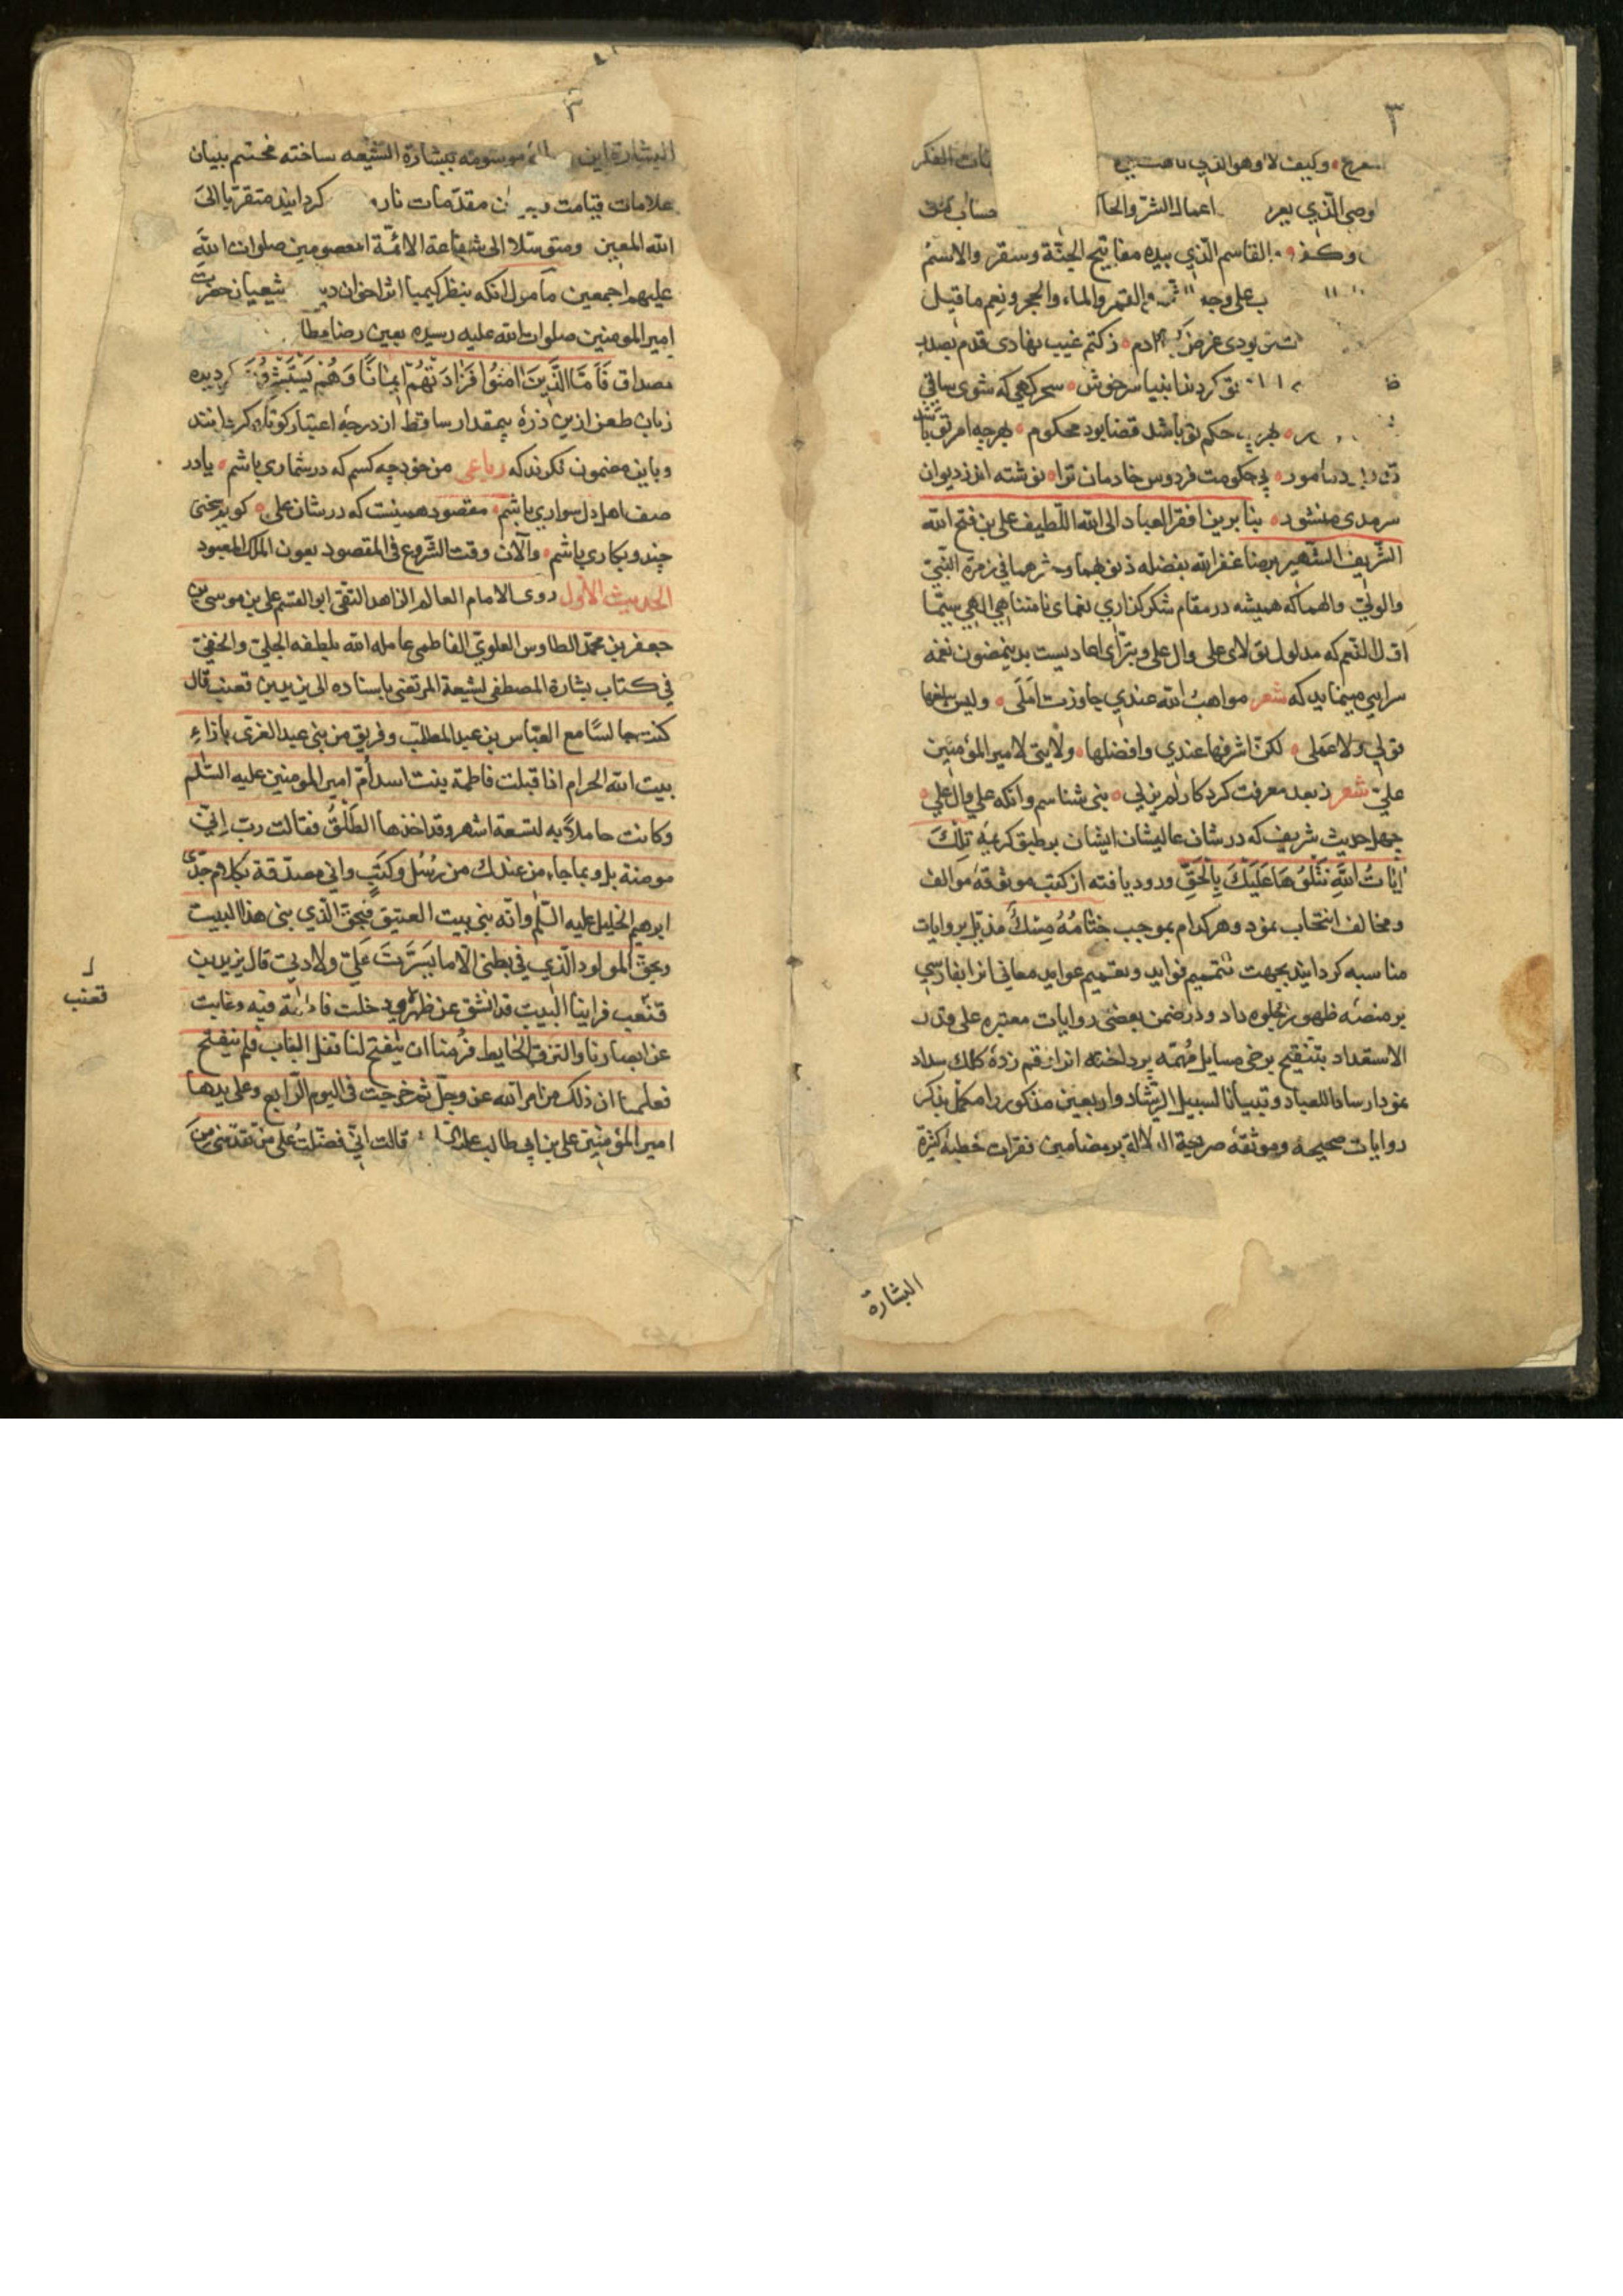 ۳
وكيف لا وهو الذي
وصي الذي اعمال الشر والحا حساب
القاسم الذي بيده مفاتيح الجنة وسقر والاسم
ب على وجه القمر والماء والحجر ونعم ما قيل
بودى غرض ز كتم غيب نهادى قدم بصدر
كردند انبيا سرخوش سحركهى كه شوى ساقى
حكم تو باشد قضا بود محكوم بهرچه امر تو باشد
مامور پى حكومت فردوس خادمان ترا نوشته اند ز ديوان
سرمدى منشور بنا برين افقر العباد الى الله اللطيف على بن فتح الله
الشريف الشهير برضا غفر الله بفضله ذنوبهما وحشرهما في زمرة النبي
والولي والهما كه هميشه در مقام شكر كذارى نعماى نامتناهى الهى سيما
اول النعم كه مدلول تولاى على وال على وتبراى اعاديست بدينمضمون نغمه
سرايى مينمايد كه شعر مواهب الله عندي جاوزت املى وليس يبلغها
قولي ولا عملى لكن اشرفها عندي وافضلها ولايتى لامير المؤمنين
علي شعر ز بعد معرفت كردكار لم يزلى بنى شناسم وانكه على وال على
چهل حديث شريف كه در شان عاليشان ايشان بر طبق كريمه تلك
ايات الله نتلوها عليك بالحق ورود يافته از كتب موثوقه موالف
ومخالف انتخاب نمود وهر كدام بموجب ختامه مسك مذيل بروايات
مناسبه كردانيد بجهت تتميم فوايد وتعميم عوايد معانى انرا بفارسى
بر منصه ظهور جلوه داد ودر ضمن بعضى روايات معتبره على قدر
الاستعداد بتنقيح برخى مسايل مهمه پرداخته انرا رقم زدهٔ كلك سداد
نمود ارشادا للعباد وتبيانا لسبيل الرشاد واربعين مذكور را مكمل بذكر
روايات صحيحه وموثقه صريحة الدلالة بر مضامين فقرات خطبهٔ كثيرة
البشارة
البشارة اين موسومه ببشارة الشيعه ساخته مختتم ببيان
علامات قيامت مقدمات كردانيد متقربا الى
الله المعين ومتوسلا الى شفاعة الائمة المعصومين صلوات الله
عليهم اجمعين مامول انكه بنظر كيميا اثر اخوان شعيان حضرت
امير المومنين صلوات الله عليه رسيده بعين رضا
مصداق فاما الذين امنوا فزادتهم ايمانا وهم يستبشرون كرديده
زبان طعن ازين ذرهٔ بيمقدار ساقط از درجهٔ اعتبار كوتاه كردانند
وباين مضمون نكرند كه رباعى من خود چه كسم كه در شمارى باشم يا در
صف اهل دل سوارى باشم مقصود همينست كه در شان على كويم سخنى
چند وبكارى باشم والآن وقت الشروع فى المقصود بعون الملك المعبود
الحديث الاول روى الامام العالم الزاهد التقى ابو القسم على بن موسى بن
جعفر بن محمد الطاوس العلوي الفاطمى عامله الله بلطفه الجلي والخفي
في كتاب بشارة المصطفى لشيعة المرتضى باسناده الى يزيد بن قعنب قال
كنت جالسا مع العباس بن عبد المطلب وفريق من بنى عبد العزى بازاء
بيت الله الحرام اذ اقبلت فاطمة بنت اسد ام امير المومنين عليه السلم
وكانت حاملة به لتسعة اشهر وقد اخذها الطلق فقالت رب اني
مومنة بك وبما جاء من عندك من رسل وكتب واني مصدقة بكلام جدى
ابرهيم الخليل عليه السلم وانه بنى بيت العتيق فبحق الذي بنى هذا البيت
وبحق المولود الذي في بطنى الا ما يسرت على ولادتي قال يزيد بن
قعنب فراينا البيت قد انشق عن ظهره ودخلت فاطمة فيه وغابت
عن ابصارنا والتزق الحايط فرمنا ان ينفتح لنا قفل الباب فلم ينفتح
فعلمنا ان ذلك من امر الله عز وجل ثم خرجت فى اليوم الرابع وعلى يدها
امير المؤمنين على بن ابي طالب عليه السلم قالت اني فضلت على من تقدمنى من
قعنب